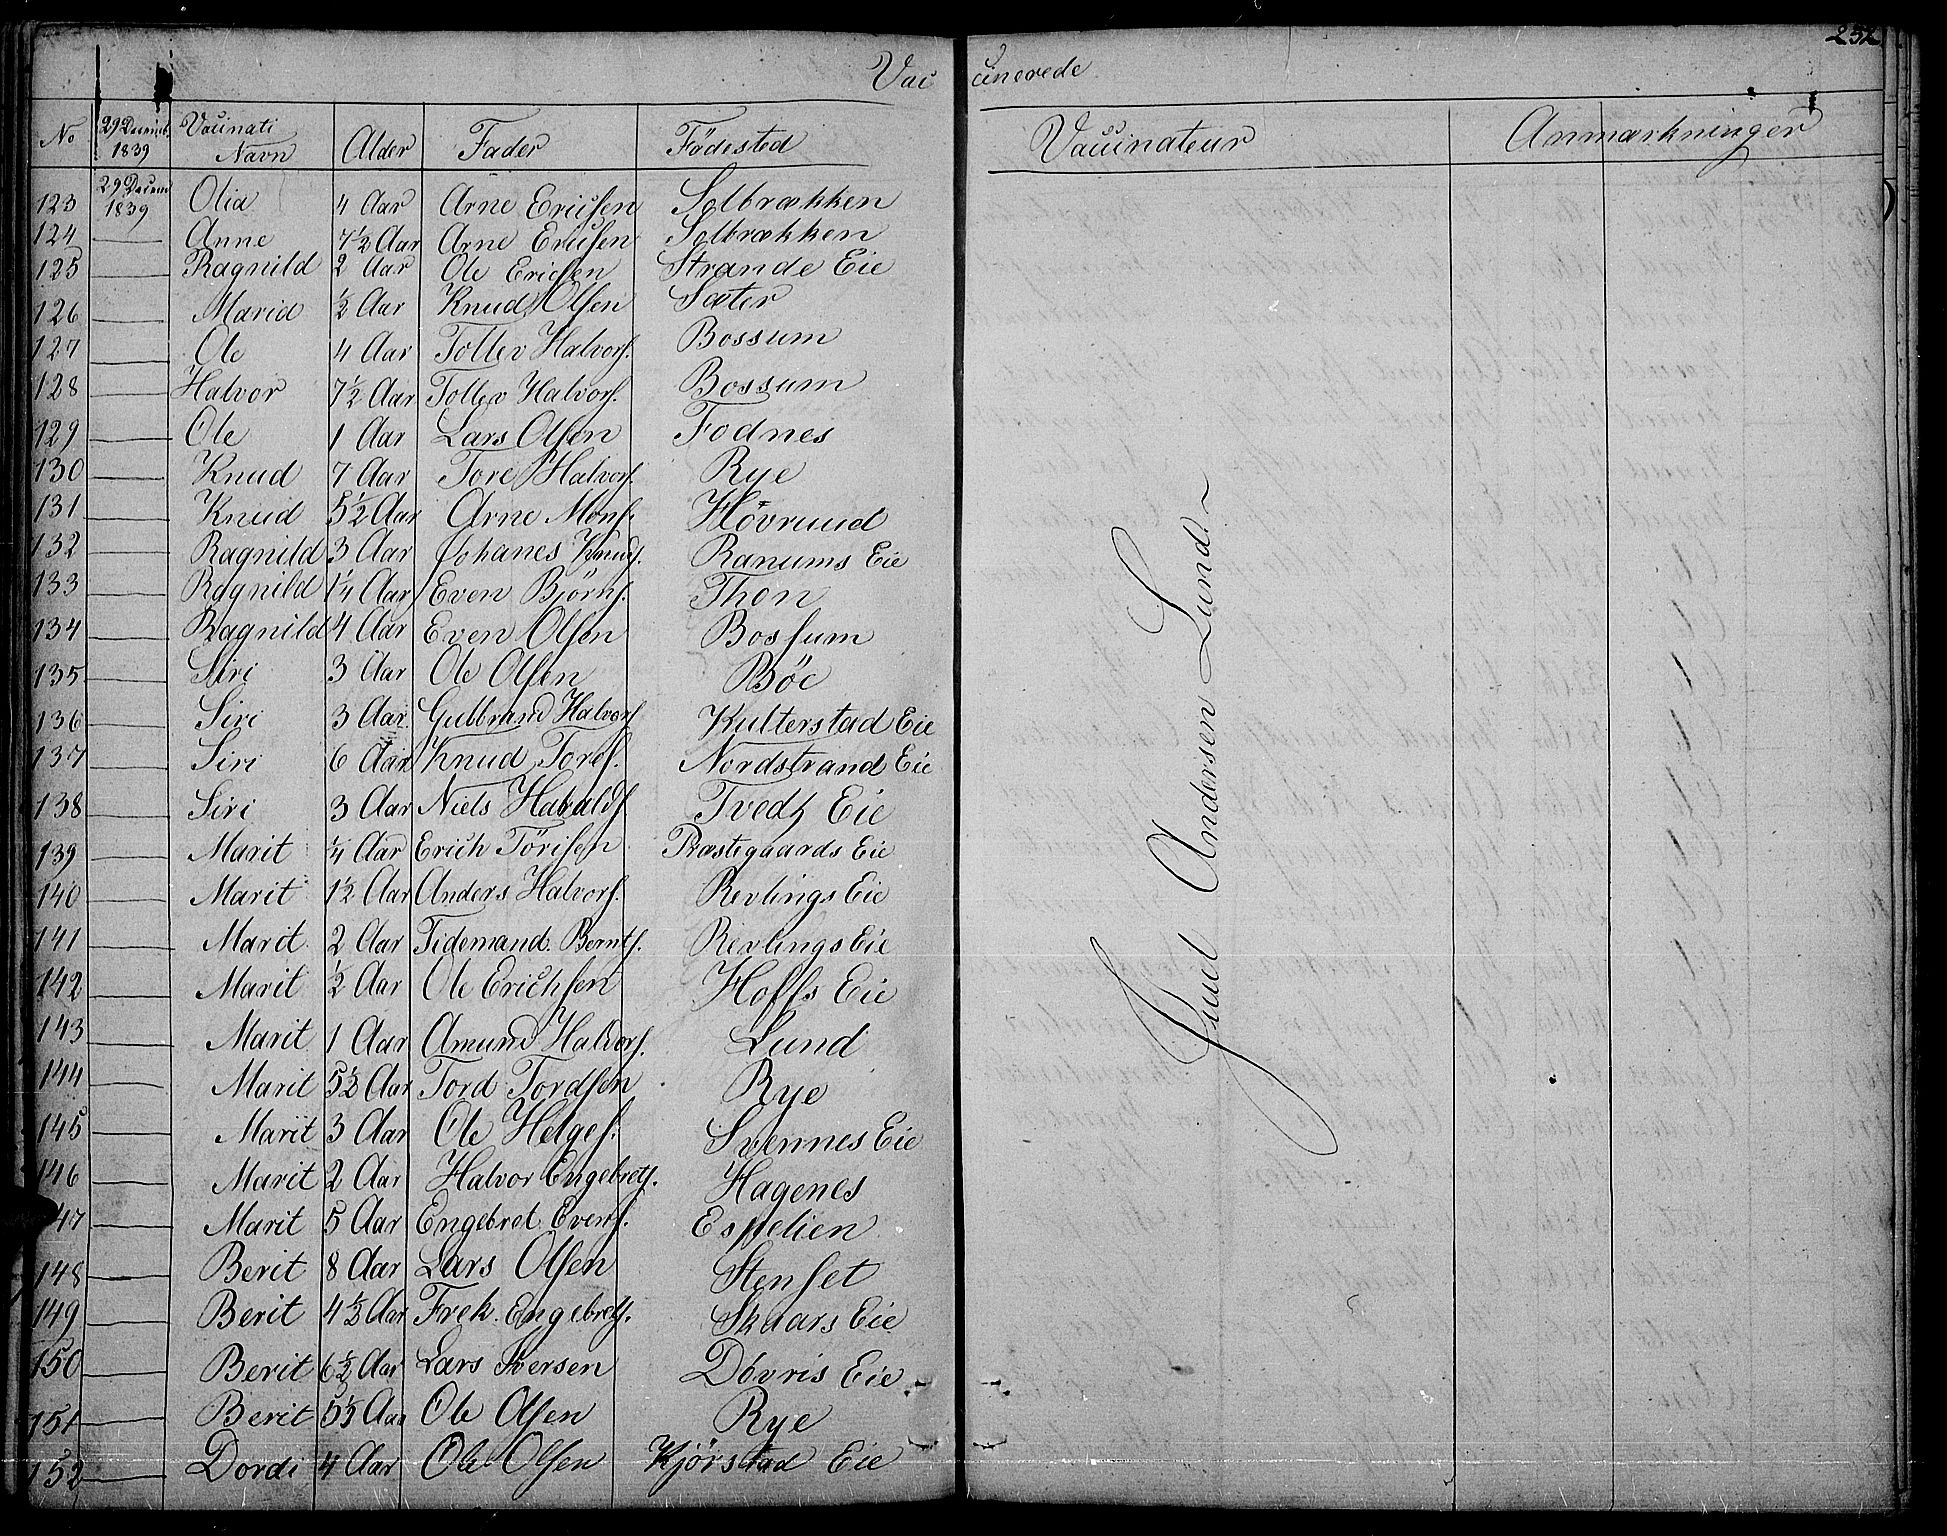 252
Vaccinerede
No 29 Decemb. 1839 Vaccinati Navn Alder Fader Födested Vaccinateur Anmærkninger
123 29 Decem 1839 Olia 4 Aar Arne Ericsen Solbrækken
124 Anne 7½ Aar Arne Ericsen Solbrækken
125 Ragnild 2 Aar Ole Ericsen Strande Eie
126 Marid ½ Aar Knud Olsen Sæter
127 Ole 4 Aar Tollev Halvors. Bossum
128 Halvor 7½ Aar Tollev Halvors. Bossum
129 Ole 1 Aar Lars Olsen Fodnes
130 Knud 7 Aar Tore Halvors. Rye
131 Knud 5½ Aar Arne Mons. Hövrund
132 Ragnild 3 Aar Johanes Knuds. Ranums Eie
133 Ragnild 1¼ Aar Even Björns. Thon
134 Ragnild 4 Aar Even Olsen Bossum
135 Siri 3 Aar Ole Olsen Böe
136 Siri 3 Aar Gulbrand Halvors. Kulterstad Eie
137 Siri 6 Aar Knud Tores. Nordstrand Eie
138 Siri 3 Aar Niels Havalds. Tvedt Eie
139 Marit ¼ Aar Erich Törisen Præstegaards Eie
140 Marit 1½ Aar Anders Halvors. Revlings Eie
141 Marit 2 Aar Tidemand Bernts. Revlings Eie
142 Marit ½ Aar Ole Erichsen Hoffs Eie
143 Marit 1 Aar Amund Halvors. Lund
144 Marit 5½ Aar Tord Tordsen Rye
145 Marit 3 Aar Ole Helges. Svennes Eie
146 Marit 2 Aar Halvor Engebrets. Hagenes
147 Marit 5 Aar Engebret Evens. Espelien
148 Berit 8 Aar Lars Olsen Stenset
149 Berit 4½ Aar Frek. Engebrets. Skaars Eie
150 Berit 6½ Aar Lars Iversen Dövris Eie
151 Berit 5½ Aar Ole Olsen Rye
152 Dordi 4 Aar Ole Olsen Kjörstad Eie
Juul Andersen Lunde